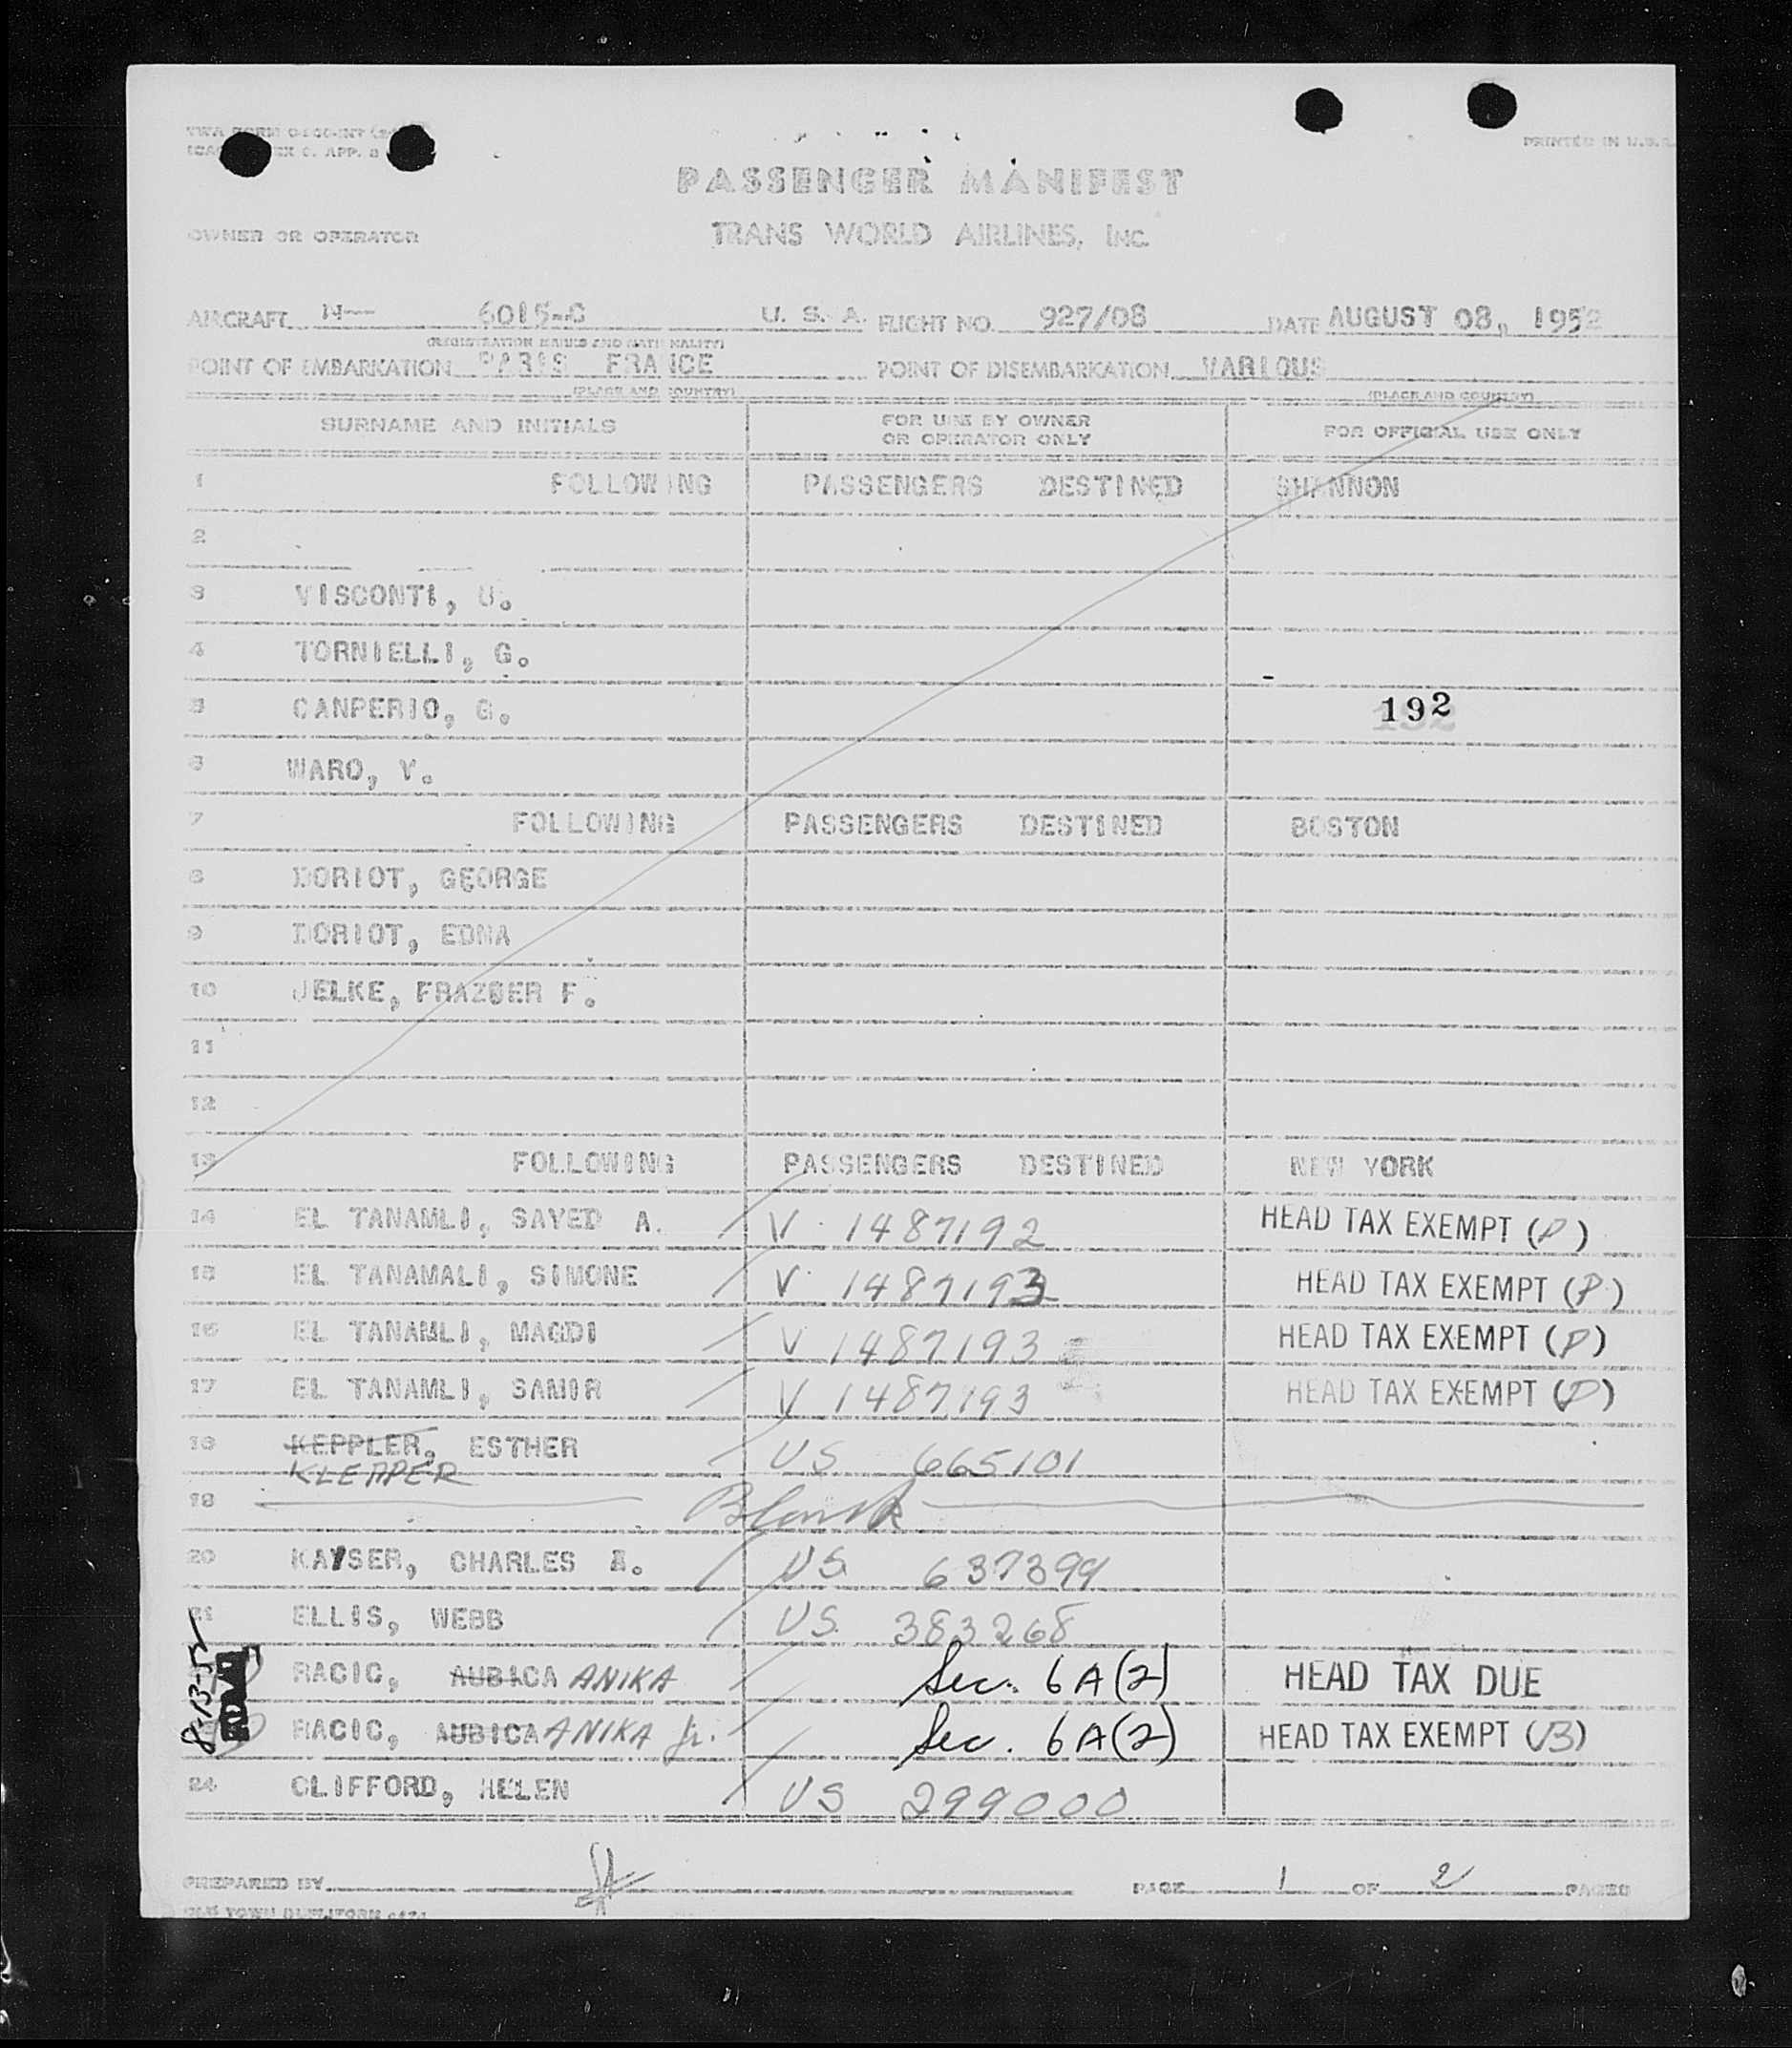 PASSENGER MANIFEST
PRINTED IN U.S.A.
OWNER OR OPERATOR TRANS WORLD AIRLINES, INC.
AIRCRAFT N— 6015-C U. S. A. FLIGHT NO. 927/08 DATE AUGUST 08, 1952
(REGISTRATION MARKS AND NATIONALITY)
POINT OF EMBARKATION PARIS FRANCE POINT OF DISEMBARKATION VARIOUS
(PLACE AND COUNTRY) (PLACE AND COUNTRY)
SURNAME AND INITIALS FOR USE BY OWNER OR OPERATOR ONLY FOR OFFICIAL USE ONLY
1 FOLLOWING PASSENGERS DESTINED SHANNON
2
3 VISCONTI, U.
4 TORNIELLI, G.
5 CANPERIO, G. 192
6 WARO, V.
7 FOLLOWING PASSENGERS DESTINED BOSTON
8 DORIOT, GEORGE
9 DORIOT, EDNA
10 JELKE, FRAZEER F.
11
12
13 FOLLOWING PASSENGERS DESTINED NEW YORK
14 EL TANAMLI, SAYED A. V 1487192 HEAD TAX EXEMPT (P)
15 EL TANAMALI, SIMONE V 1487193 HEAD TAX EXEMPT (P)
16 EL TANAMLI, MAGDI V 1487193 HEAD TAX EXEMPT (P)
17 EL TANAMLI, SAMIR V 1487193 HEAD TAX EXEMPT (P)
18 KEPPLER, ESTHER US 665101
KLEMPER
19 Blank
20 KAYSER, CHARLES US 637399
21 ELLIS, WEBB US 383268
RACIC, AUBICA ANIKA Sec. 6A(2) HEAD TAX DUE
RACIC, AUBICA ANIKA Jr. Sec. 6A(2) HEAD TAX EXEMPT (B)
8-13-52
24 CLIFFORD, HELEN US 299000
PREPARED BY PAGE 1 OF 2 PAGES